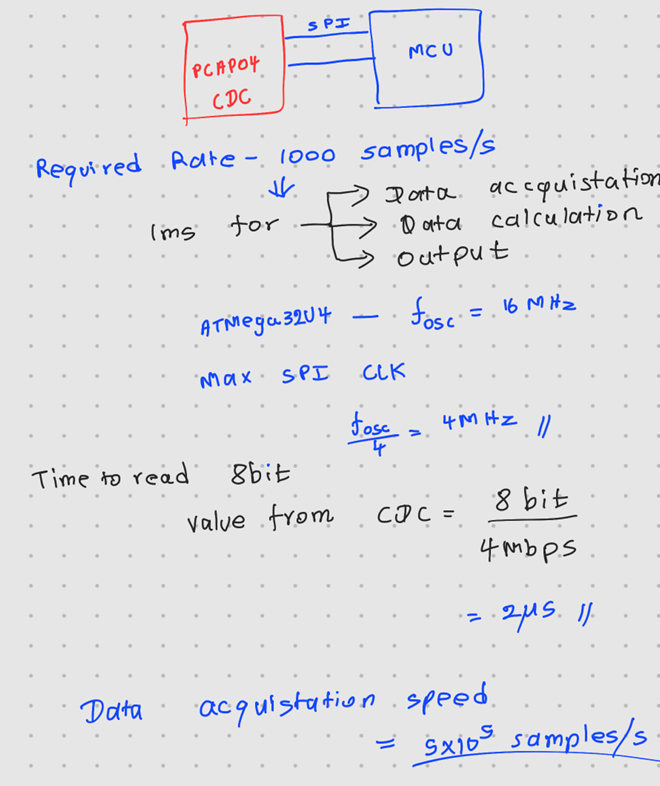 SPI
PCAP04
CDC
MCU
Required Rate - 1000 samples/s
1ms for
Data accquistation
Data calculation
output
ATMega32U4 — fosc = 16 MHz
Max SPI CLK
fosc/4 = 4MHz //
Time to read 8bit
value from CDC = 8 bit / 4mbps
= 2µs //
Data acquistation speed
= 5x10⁵ samples/s